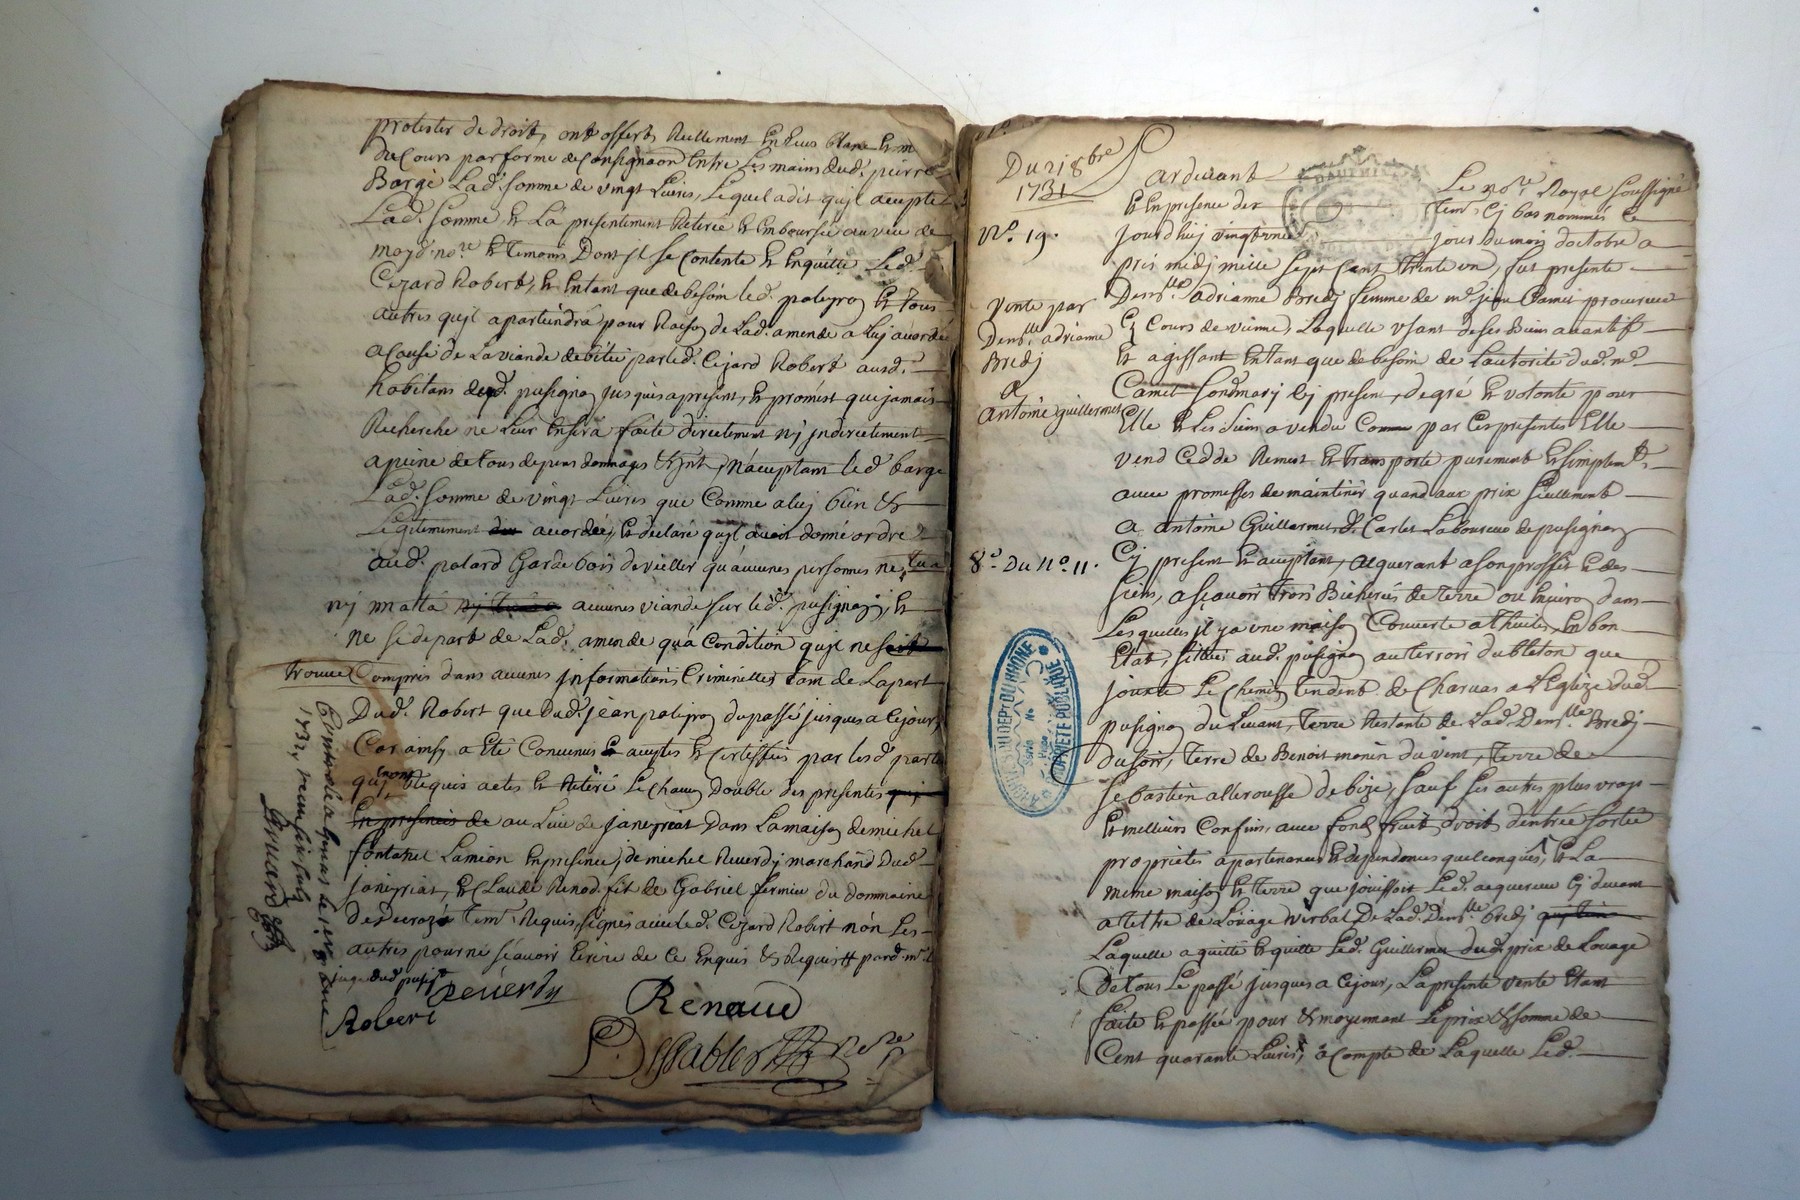 protester de droit, ont offert Reellement En Ecus blanc
de Cours par forme de Consignaon Entre Les mains dud. pierre
Barge Lad. Somme de vingt Livres, Lequel a dit qu'jl accepte
Lad. Somme Et La presentement Retirée Et Emboursée au veu de
moyd. nore Et Temoins Dont jl se Contente Et Enquitte Led.
Cezard Robert, Et Entant que de besoin led. poleyron Et Tous
autres qu'jl apartiendra pour Raison de Lad. amende a Luj
a Cause de La viande debitée par led. Cezard Robert ausd.
habitans dud. pusignan jusques a present, Et promest que jamais
Recherche ne Leur En sera faite directement nj jndirectement
a peine de tous depens domages Et jnt, led. barge
Lad. Somme de vingt Livres que Comme a luj bien &
Legitimement due acordée, Et declaré qu'jl avoit donné ordre
aud. polard Garde bois de veiller qu'aucunes personnes ne
nj aucunes viande sur led. pusignan, Et
ne se depart de Lad. amende qu'a Condition qu'jl ne soit
trouvé Compris dans aucunes jnformations Criminelles tant de La part
Dud. Robert que dud. jean poleyron du passé jusques a Ce jour,
Car ainsy a Eté Convenus acceptes Et par lesd. partie
qui nont Requis actes Et Retiré Le Chacun Double des presentes
En presences de au Lieu de janeyriat Dans La maison de michel
fontanel En presence, de michel Reverdy marchand Dud.
janeyriat, Et Claude Renod fils de Gabriel fermier du dommaine
de Tem. Requis, signés avec led. Cezard Robert non Les
autres pour ne sçavoir Ecrire de Ce Enquis & Requis par d. mr.
juge dud. pusign.
Reverdy
Robert
Renaud
Du 21 8bre
1731
No. 19.
vente par
Demlle adrianne
Bredj
a
antoine guillermet
8e. Du No. 11.
ardurant Le Nore Royal Soussigné
Et En presence des Tem. Cj bas nommés Ce
jourd'huj vingt unie jour du mois d'octobre a
pres midj mille Sept Cent Trente un, fut presente
Demlle adrianne Bredj femme de me. jean Camet procureur
Ez Cours de vienne, Laquelle Usant de ses Biens
Et agissant Entant que de besoin de Lautorité dud. me.
Camet Son mary Cj present, de gré Et volonté pour
Elle Et Les Siens a vendu Comme par Ces presentes Elle
vend Cedde Remest Et Transporte purement Et Simplemt.
avec promesses de maintenir quand aux prix Seullement
a antoine Guillermet d. Carlet Laboureur de pusignan
Cj present Et acceptant, acquerant a Son proffit Et des
Siens, a sçavoir Trois Bicherées de Terre ou Environ dans
Lesquelles jl ya une maison Couverte a thuiles, En bon
Etat, sittués aud. pusignan au terroir du bleton que
jouxte Le Chemin Tendent de Charvas a L'Eglize dud.
pusignan du Levant, Terre Restante de Lad. Demlle Bredj
du soir, Terre de Benoit monin du vent, Terre de
Sebastien allerousse de bize, Sauf Ses autres plus vrays
Et meilleurs Confins, avec fond, fruit, droits d'entrée Sortie
proprietés apartenences Et dependences quelconques, Et La
meme maison Et Terre que jouissoit Led. acquereur Cj devant
a tittre de Louage verbal De Lad. Demlle bredj
Laquelle a quitté Et quitte Led. Guillermet dud. prix de Louage
De tous Le passé jusques a Ce jour, La presente vente Etant
faite Et passée pour & moyennant Le prix & Somme de
Cent quarante Livres, a Compte de Laquelle Led.
ARCHIVES DU DEPT DU RHONE
PROPRIETE PUBLIQUE